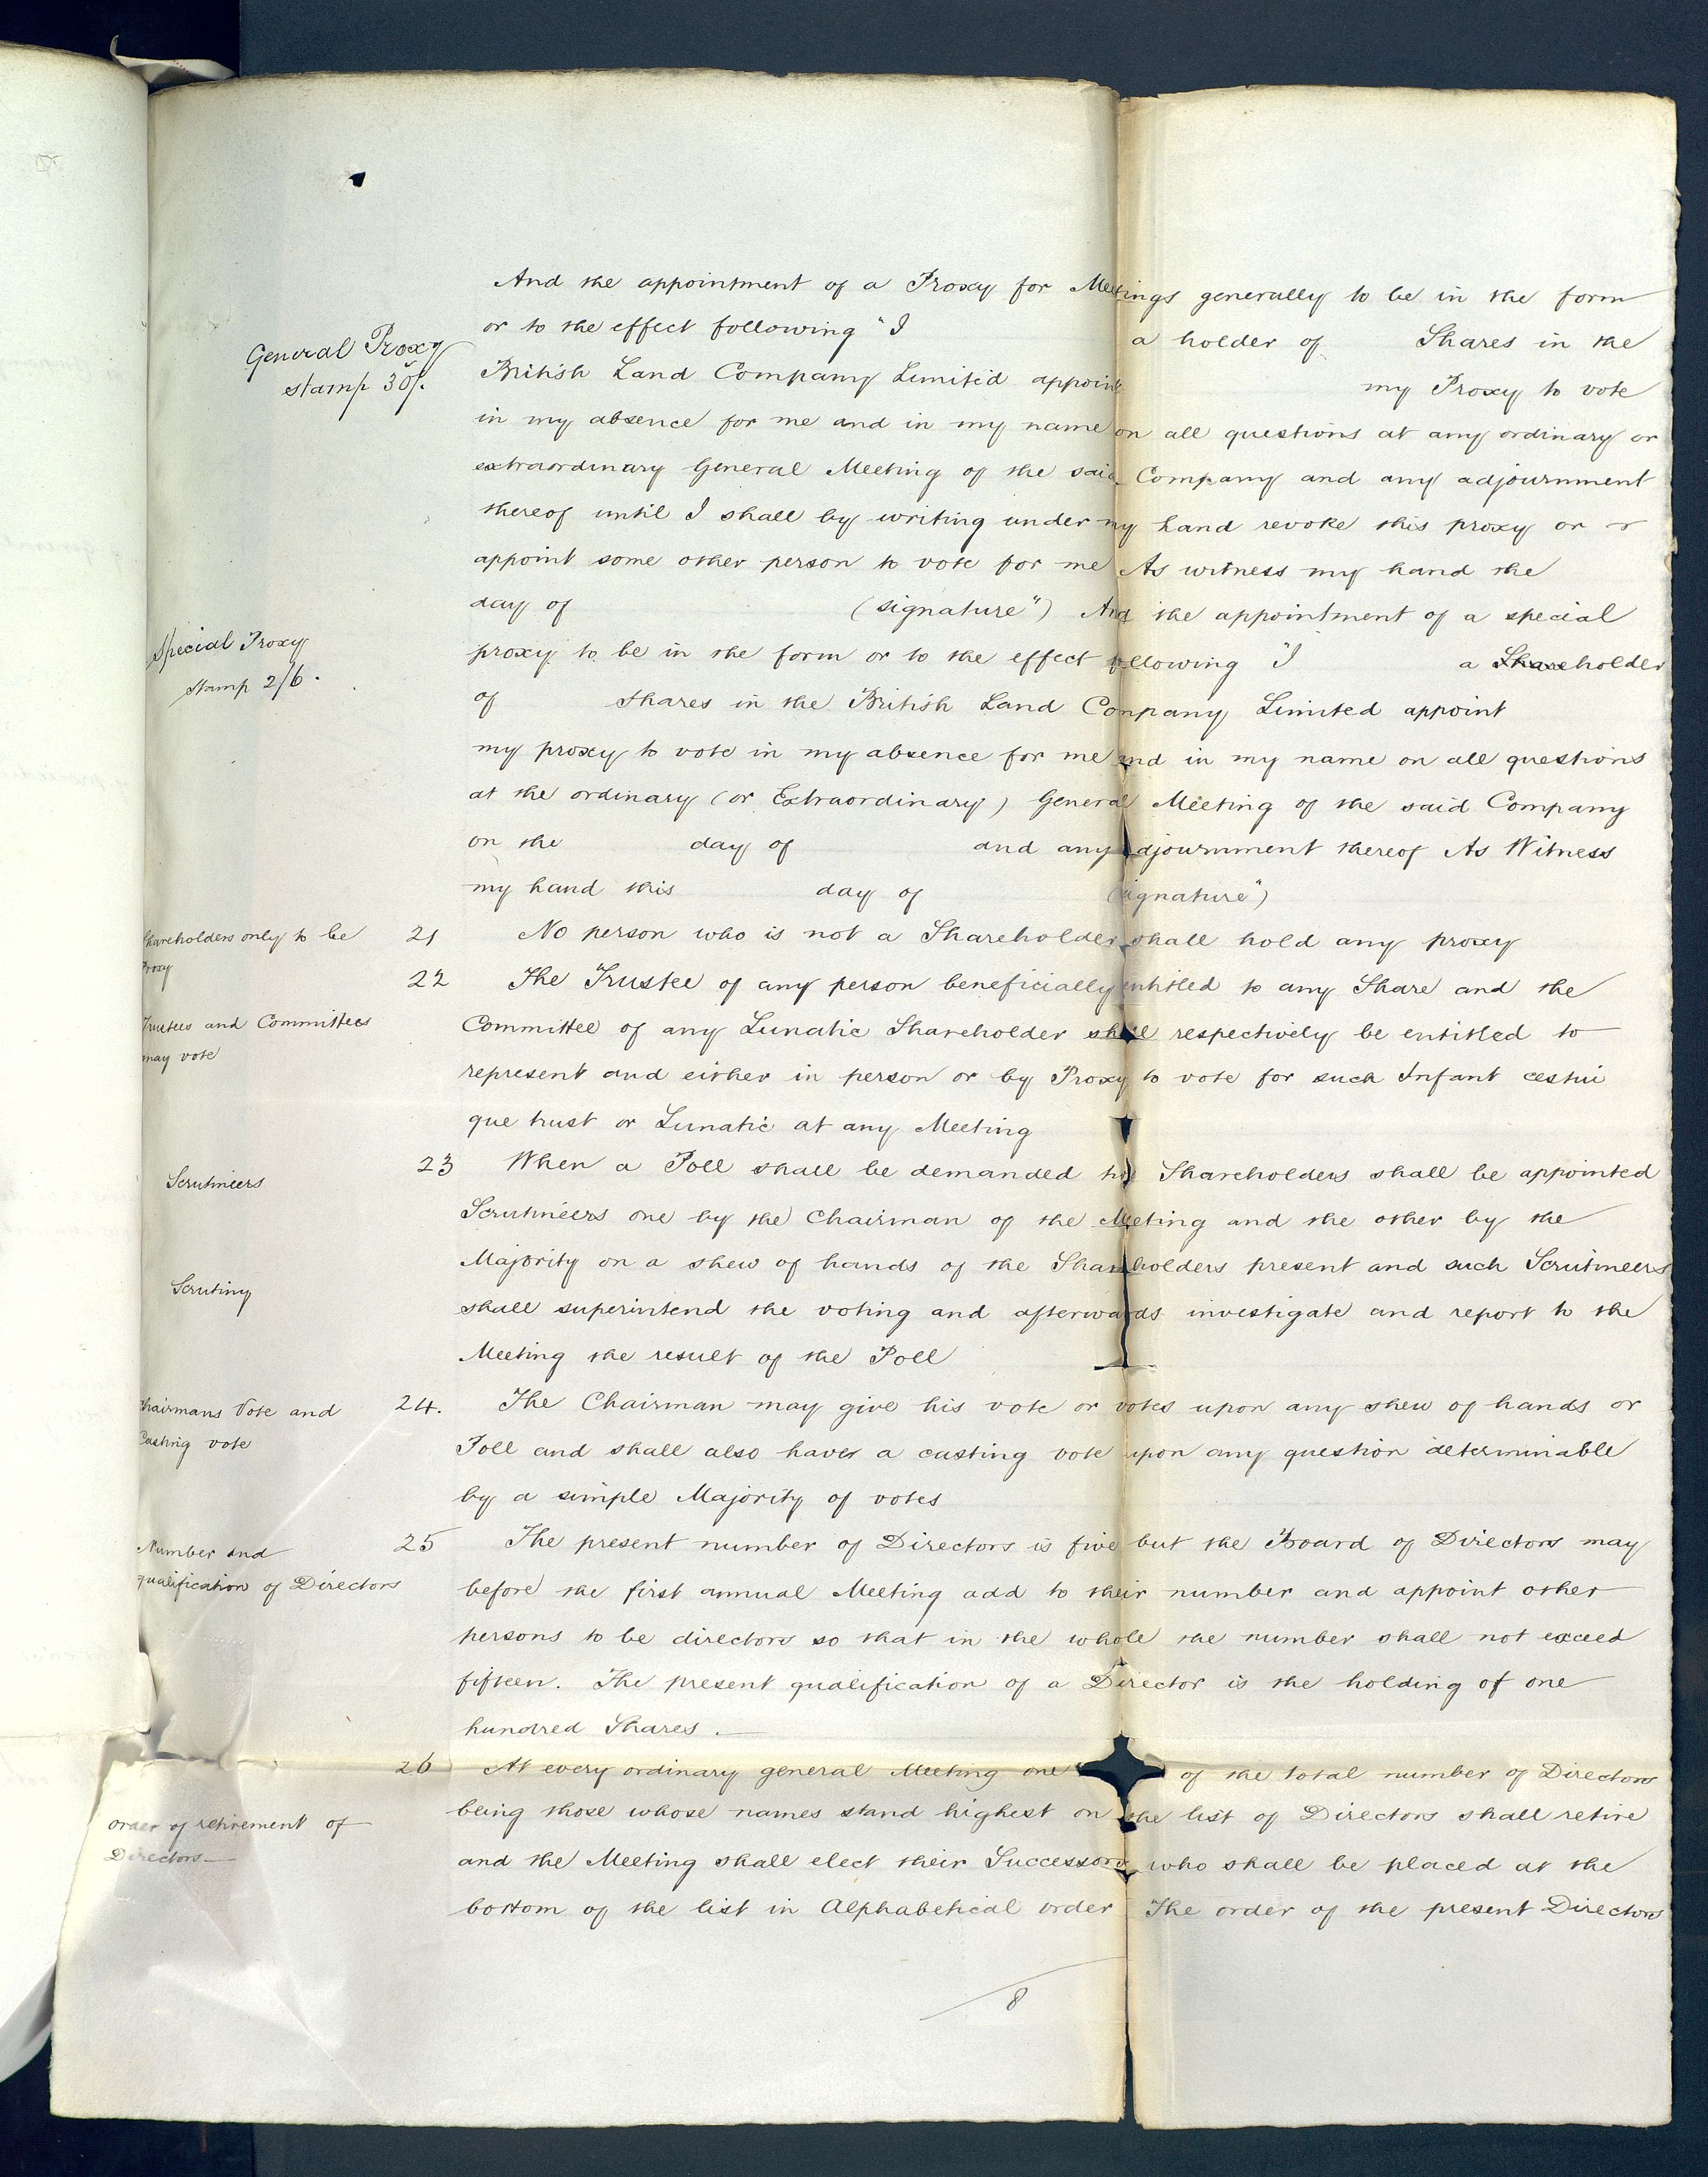 And the appointment of a Proxy for Meetings generally to be in the form
or to the effect following "I a holder of Shares in the
General Proxy
stamp 30/.
British Land Company Limited appoint my Proxy to vote
in my absence for me and in my name on all questions at any ordinary or
extraordinary General Meeting of the said Company and any adjournment
thereof until I shall by writing under my hand revoke this proxy or
appoint some other person to vote for me As witness my hand the
day of (signature") And the appointment of a special
Special Proxy
stamp 2/6.
proxy to be in the form or to the effect following "I a Shareholder
of Shares in the British Land Company Limited appoint
my proxy to vote in my absence for me and in my name on all questions
at the ordinary (or Extraordinary) General Meeting of the said Company
on the day of and any adjournment thereof As Witness
my hand this day of (signature")
Shareholders only to be
Proxy
21 No person who is not a Shareholder shall hold any proxy
Trustees and Committees
may vote
22 The Trustee of any person beneficially entitled to any Share and the
Committee of any Lunatic Shareholder shall respectively be entitled to
represent and either in person or by Proxy to vote for such Infant cestui
que trust or Lunatic at any Meeting
Scrutineers
23 When a Poll shall be demanded two Shareholders shall be appointed
Scrutineers one by the Chairman of the Meeting and the other by the
Majority on a shew of hands of the Shareholders present and such Scrutineers
Scrutiny
shall superintend the voting and afterwards investigate and report to the
Meeting the result of the Poll
Chairmans Vote and
Casting vote
24. The Chairman may give his vote or votes upon any shew of hands or
Poll and shall also have a casting vote upon any question determinable
by a simple Majority of votes
Number and
qualification of Directors
25 The present number of Directors is five but the Board of Directors may
before the first annual Meeting add to their number and appoint other
persons to be directors so that in the whole the number shall not exceed
fifteen. The present qualification of a Director is the holding of one
hundred Shares.
26 At every ordinary general Meeting one of the total number of Directors
order of retirement of
Directors
being those whose names stand highest on the list of Directors shall retire
and the Meeting shall elect their Successors who shall be placed at the
bottom of the list in Alphabetical order The order of the present Directors
8